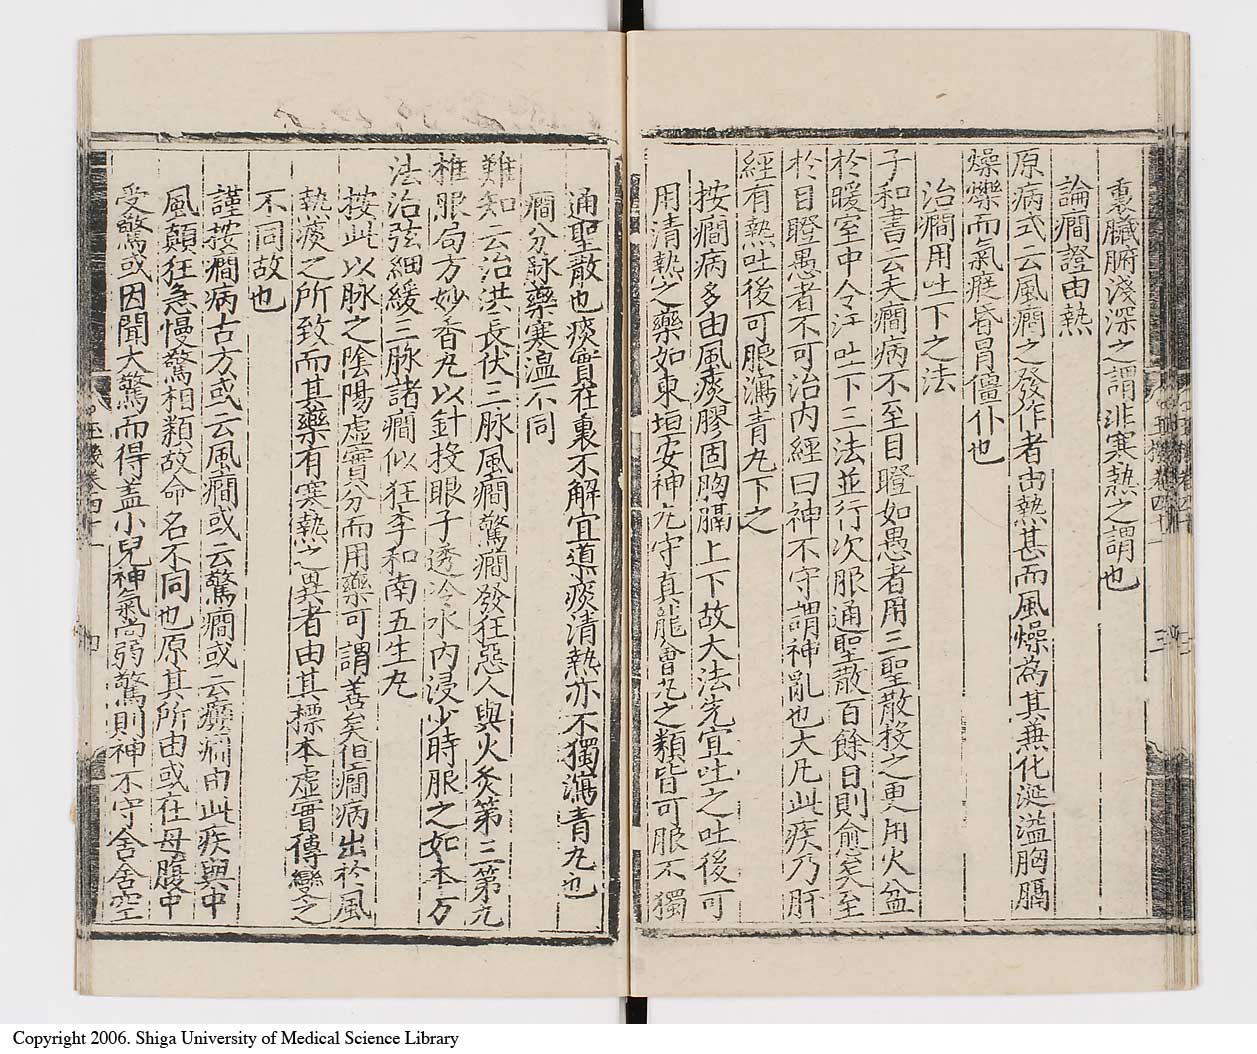 裏臟腑淺深之謂非寒熱之謂也
論癎證由熱
原病式云風癎之發作者由熱甚而風燥為其兼化涎溢胸膈
燥爍而氣㾕昏冒僵仆也
治癎用吐下之法
子和書云夫癎病不至目瞪如愚者用三聖散投之更用火盆
於暖室中令汗吐下三法並行次服通聖散百餘日則愈矣至
於目瞪愚者不可治內經曰神不守謂神亂也大凡此疾乃肝
經有熱吐後可服瀉青丸下之
按癎病多由風痰膠固胸膈上下故大法先宜吐之吐後可
用清熱之藥如東垣安神丸守真龍會丸之類皆可服不獨
通聖散也痰實在裏不解宜導痰清熱亦不獨瀉青丸也
癎分脉藥寒溫不同
難知云治洪長伏三脉風癎驚癎發狂惡人與火灸第三第九
椎服局方妙香丸以針投眼子透冷水內浸少時服之如本方
法治弦細緩三脉諸癎似狂李和南五生丸
按此以脉之陰陽虛實分而用藥可謂善矣但癎病出於風
熱痰之所致而其藥有寒熱之異者由其標本虛實傳變之
不同故也
謹按癎病古方或云風癎或云驚癎或云癲癎由此疾與中
風顛狂急慢驚相類故命名不同也原其所由或在母腹中
受驚或因聞大驚而得蓋小兒神氣尚弱驚則神不守舍舍空
Copyright 2006. Shiga University of Medical Science Library